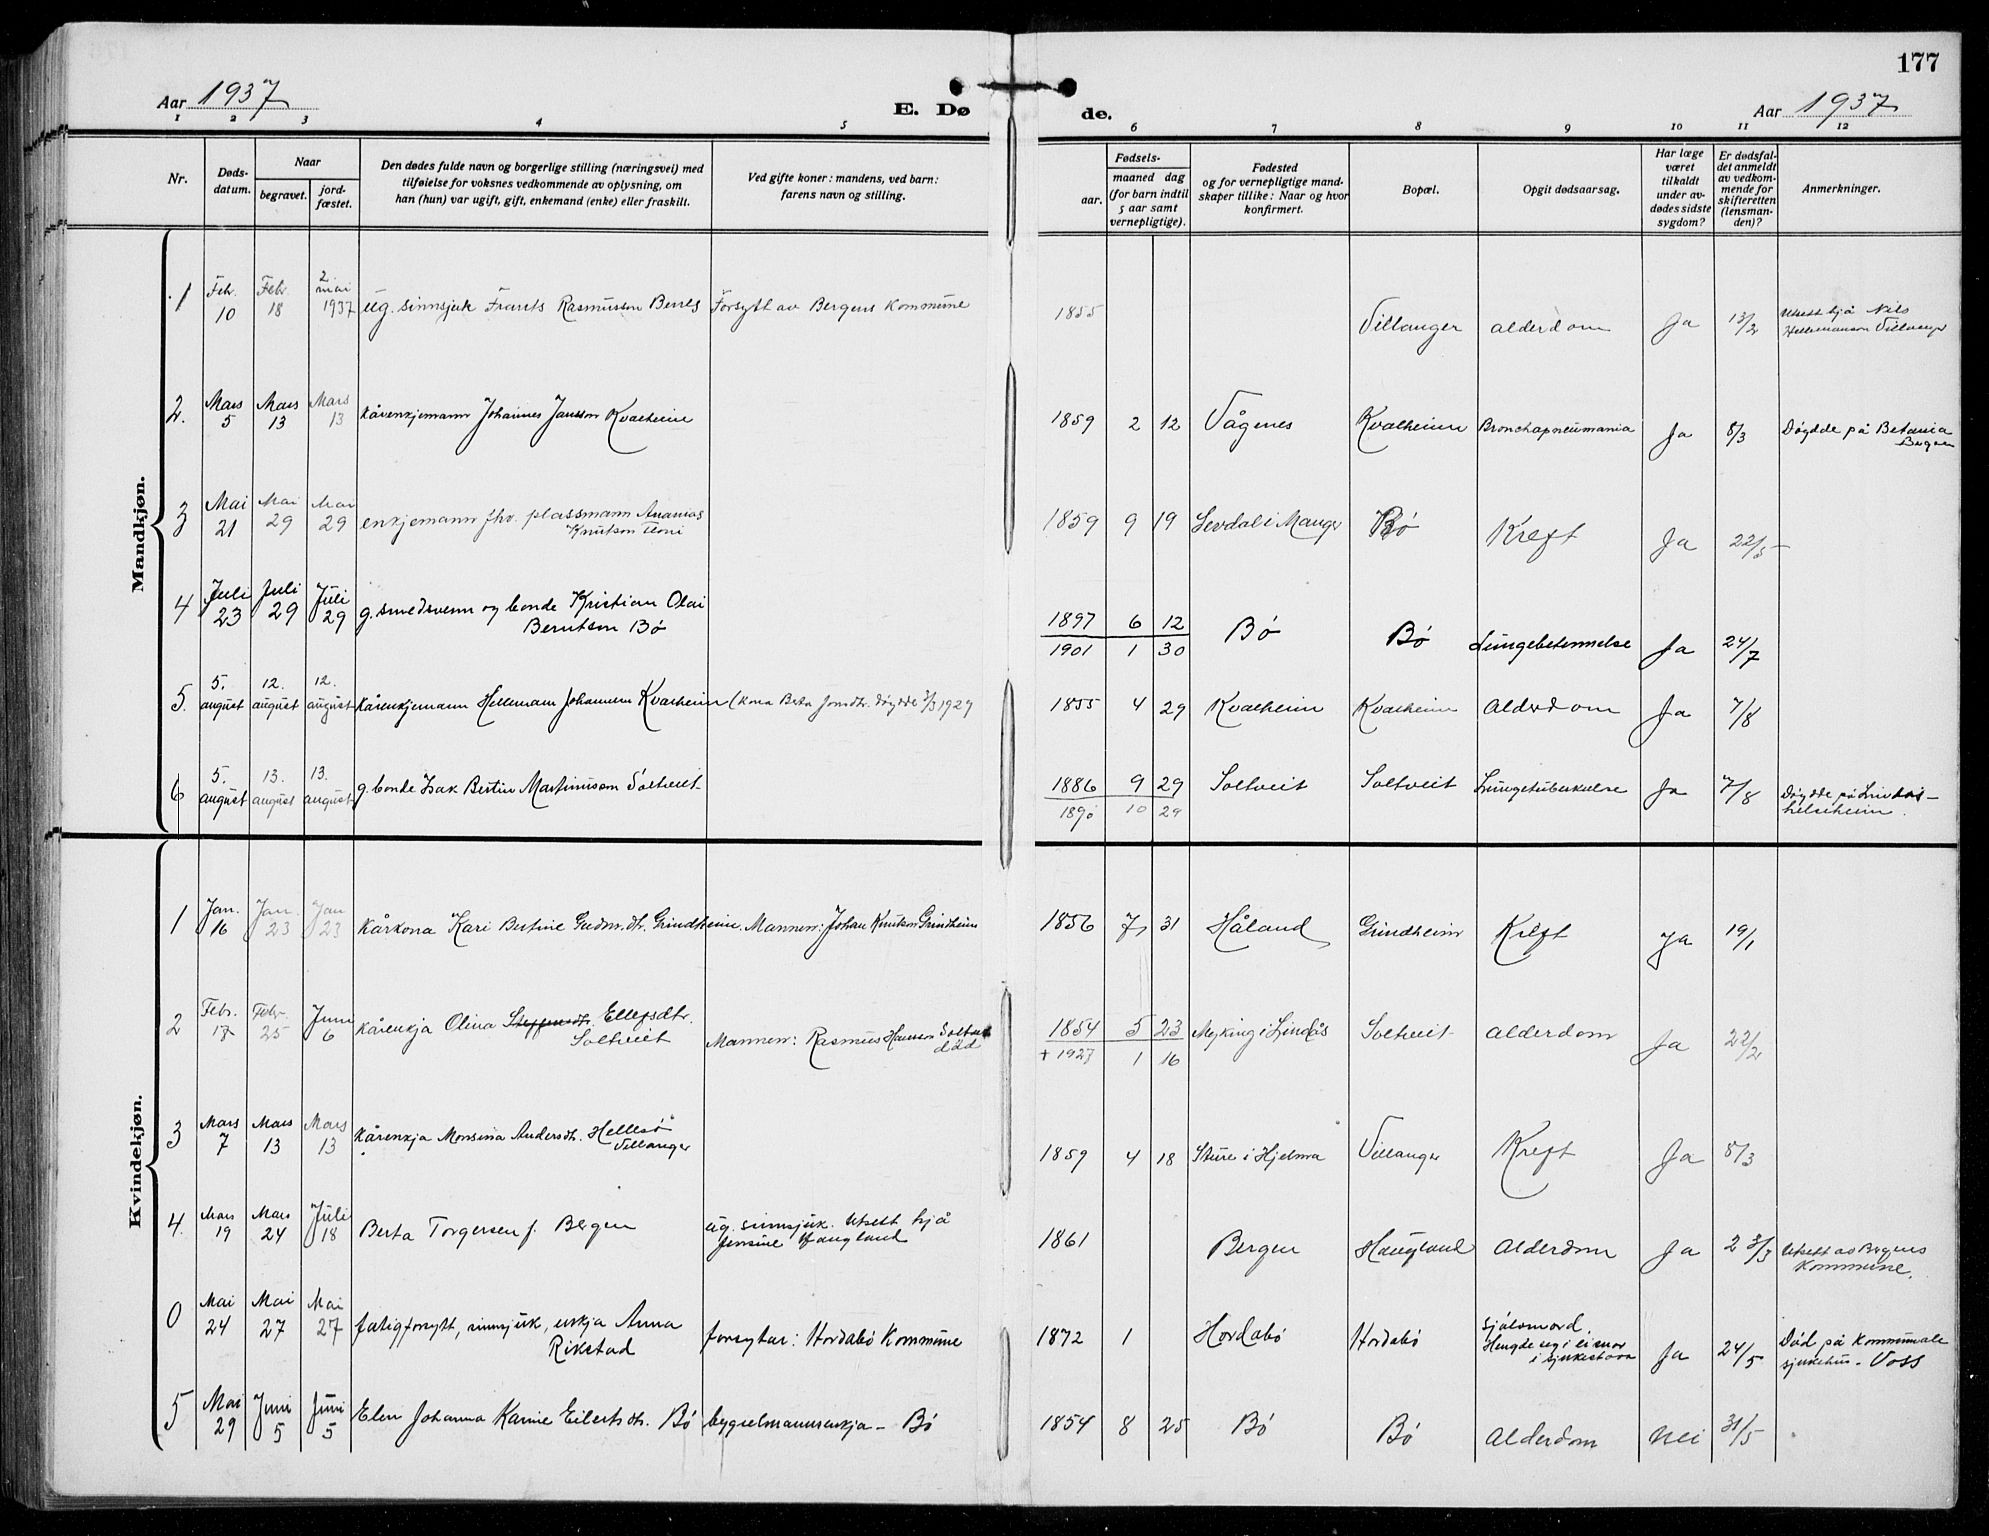 177
Aar 1937
E. Dø
de.
Aar 1937
1 2 3 4 5 6 7 8 9 10 11 12
Nr.
Døds-
datum.
Naar
begravet.
jord-
fæstet.
Den dødes fulde navn og borgerlige stilling (næringsvei) med
tilføielse for voksnes vedkommende av oplysning, om
han (hun) var ugift, gift, enkemand (enke) eller fraskilt.
Ved gifte koner: mandens, ved barn:
farens navn og stilling.
Fødsels-
aar.
maaned dag
(for barn indtil
5 aar samt
vernepligtige).
Fødested
og for vernepligtige mand-
skaper tillike: Naar og hvor
konfirmert.
Bopæl.
Opgit dødsaarsag.
Har læge
været
tilkaldt
under av-
dødes sidste
sygdom?
Er dødsfal-
det anmeldt
av vedkom-
mende for
skifteretten
(lensman-
den)?
Anmerkninger.
Mandkjøn.
1 Feb. 10 Febr. 18 2 mai 1937 ug. sinnsjuk Frants Rasmussen Forsytt av Bergens Kommune 1855 Villanger alderdom Ja 13/2 Utsett hjå Nils
Villanger
2. Mars 5 Mars 13 Mars 13 kårenkjemann Johannes Kvalheim 1859 2 12 Vågenes Kvalheim Bronchapneumania Ja 8/3 Døydde på Betania
Bergen
3 Mai 21 Mai 29 Mai 29 enkjemann fhv. plassmann Ananias
Knutson
1859 9 19 i Manger Bø Kreft Ja 22/5
4 Juli 23 Juli 29 Juli 29 g. smedsvenn og bonde Kristian Olai
Berntson Bø
1897 6 12 Bø Bø Lungebetennelse Ja 24/7
1901 1 30
5. 5. august 12. august 12. august Kårenkjemann Hellemann Johannesen Kvalheim (Kona Berta Jonsdtr. døydde 3/3 1929 1855 4 29 Kvalheim Kvalheim Alderdom Ja 7/8
6 5. august 13. august 13. august g. bonde Isak Bertin Martinusson Soltveit 1886 9 29 Soltveit Soltveit Lungetuberkulose Ja 7/8 Døydde på Lindås-
helseheim.
1890 10 29
Kvindekjøn.
1 Jan. 16 Jan. 23 Jan 23 Kårkona Kari Bertine Gudm.dtr. Grindheim. Mannen: Johan Knutson Grindheim 1856 7 31 Håland Grindheim Kreft Ja 19/1
2 Febr. 17 Febr. 25 Juni 6 Kårenkja Olina Steffensdtr. Ellefsdtr.
Soltveit
Mannen: Rasmus Hansson Soltveit
død
1854 5 23 Myking i Lindås Soltveit alderdom Ja 22/2
+ 1927 1 16
3 Mars 7 Mars 13 Mars 13 Kårenkja Monsina Andersdtr. Hellesø
Villanger
1859 4 18 Sture i Hjelma Villanger Kreft Ja 8/3
4. Mars 19 Mars 24 Juli 18 Berta Torgersen f. Bergen ug. sinnsjuk. Utsett hjå
Jensine Haugland
1861 Bergen Haugland Alderdom Ja Utsett av Bergens
Kommune.
0 Mai 24 Mai 27 Mai 27 fatigforsytt, sinnsjuk, enkja Anna
Rikstad
forsytar: Hordabø Kommune 1872 1 Hordabø Hordabø Sjølvmord
Hengde seg i ei snor
i sjukestova
Ja 24/5 Død på Kommunale
sjukehus - Voss
5 Mai 29 Juni 5 Juni 5 Elen Johanna Karine Eilertsdtr. Bø bygselmannsenkja - Bø 1854 8 25 Bø Bø Alderdom Nei 31/5